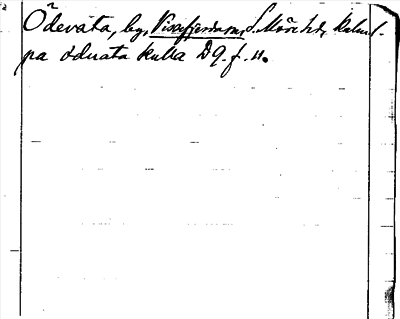 Ödevata, by, Vissefjerda sn, S. Möre hd, Kalm. l.
på öduata kulla D 9. f. 11.